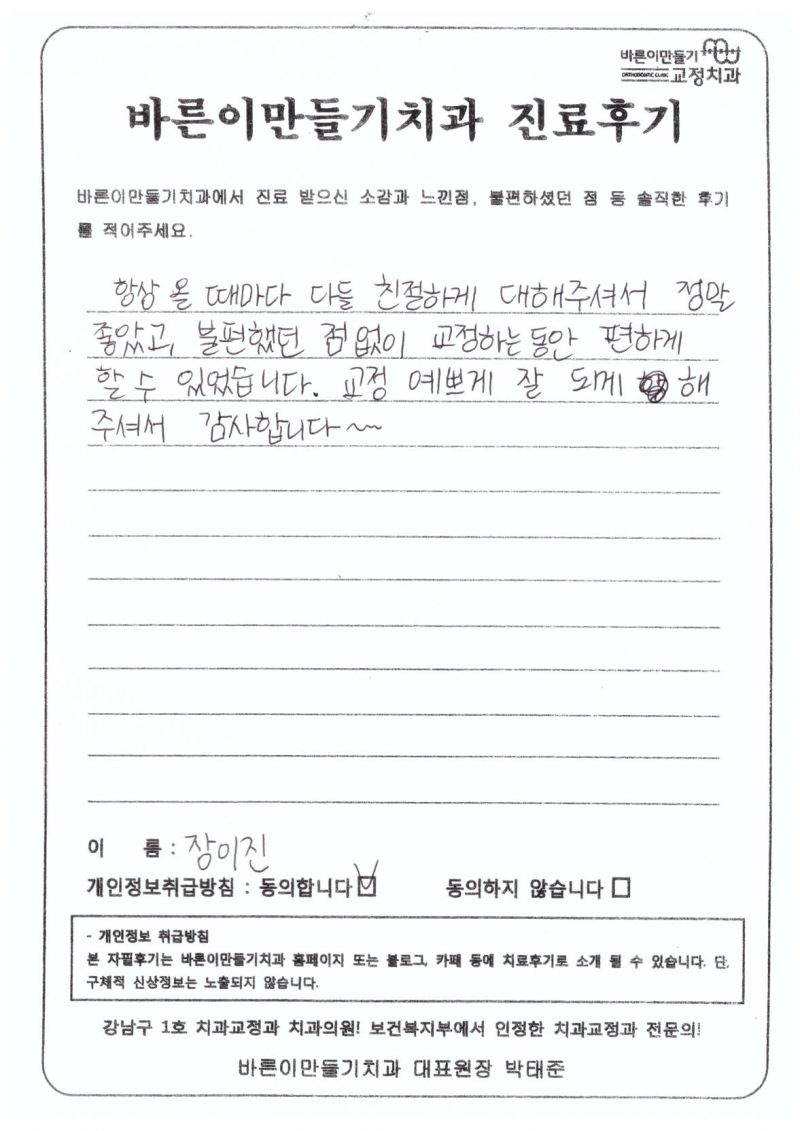 바른이만들기
ORTHODONTIC CLINIC 교정치과
바른이만들기치과 진료후기
바른이만들기치과에서 진료 받으신 소감과 느낀점, 불편하셨던 점 등 솔직한 후기
를 적어주세요.
항상 올 때마다 다들 친절하게 대해주셔서 정말
좋았고, 불편했던 점 없이 교정하는 동안 편하게
할 수 있었습니다. 교정 예쁘게 잘 되게 해
주셔서 감사합니다~
이 름 : 장이진
개인정보취급방침 : 동의합니다 ☑ 동의하지 않습니다 □
- 개인정보 취급방침
본 자필후기는 바른이만들기치과 홈페이지 또는 블로그, 카페 등에 치료후기로 소개 될 수 있습니다. 단,
구체적 신상정보는 노출되지 않습니다.
강남구 1호 치과교정과 치과의원! 보건복지부에서 인정한 치과교정과 전문의!
바른이만들기치과 대표원장 박태준